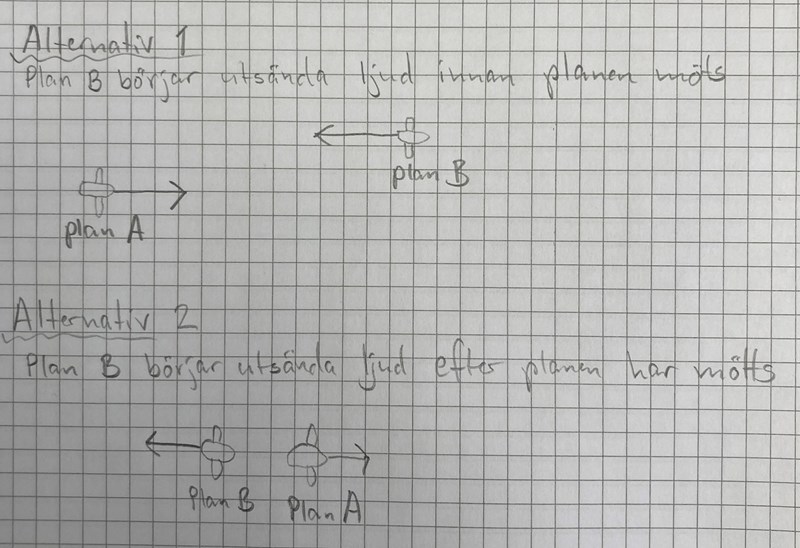 Alternativ 1
Plan B börjar utsända ljud innan planen möts
plan B
plan A
Alternativ 2
Plan B börjar utsända ljud efter planen har mötts
Plan B Plan A